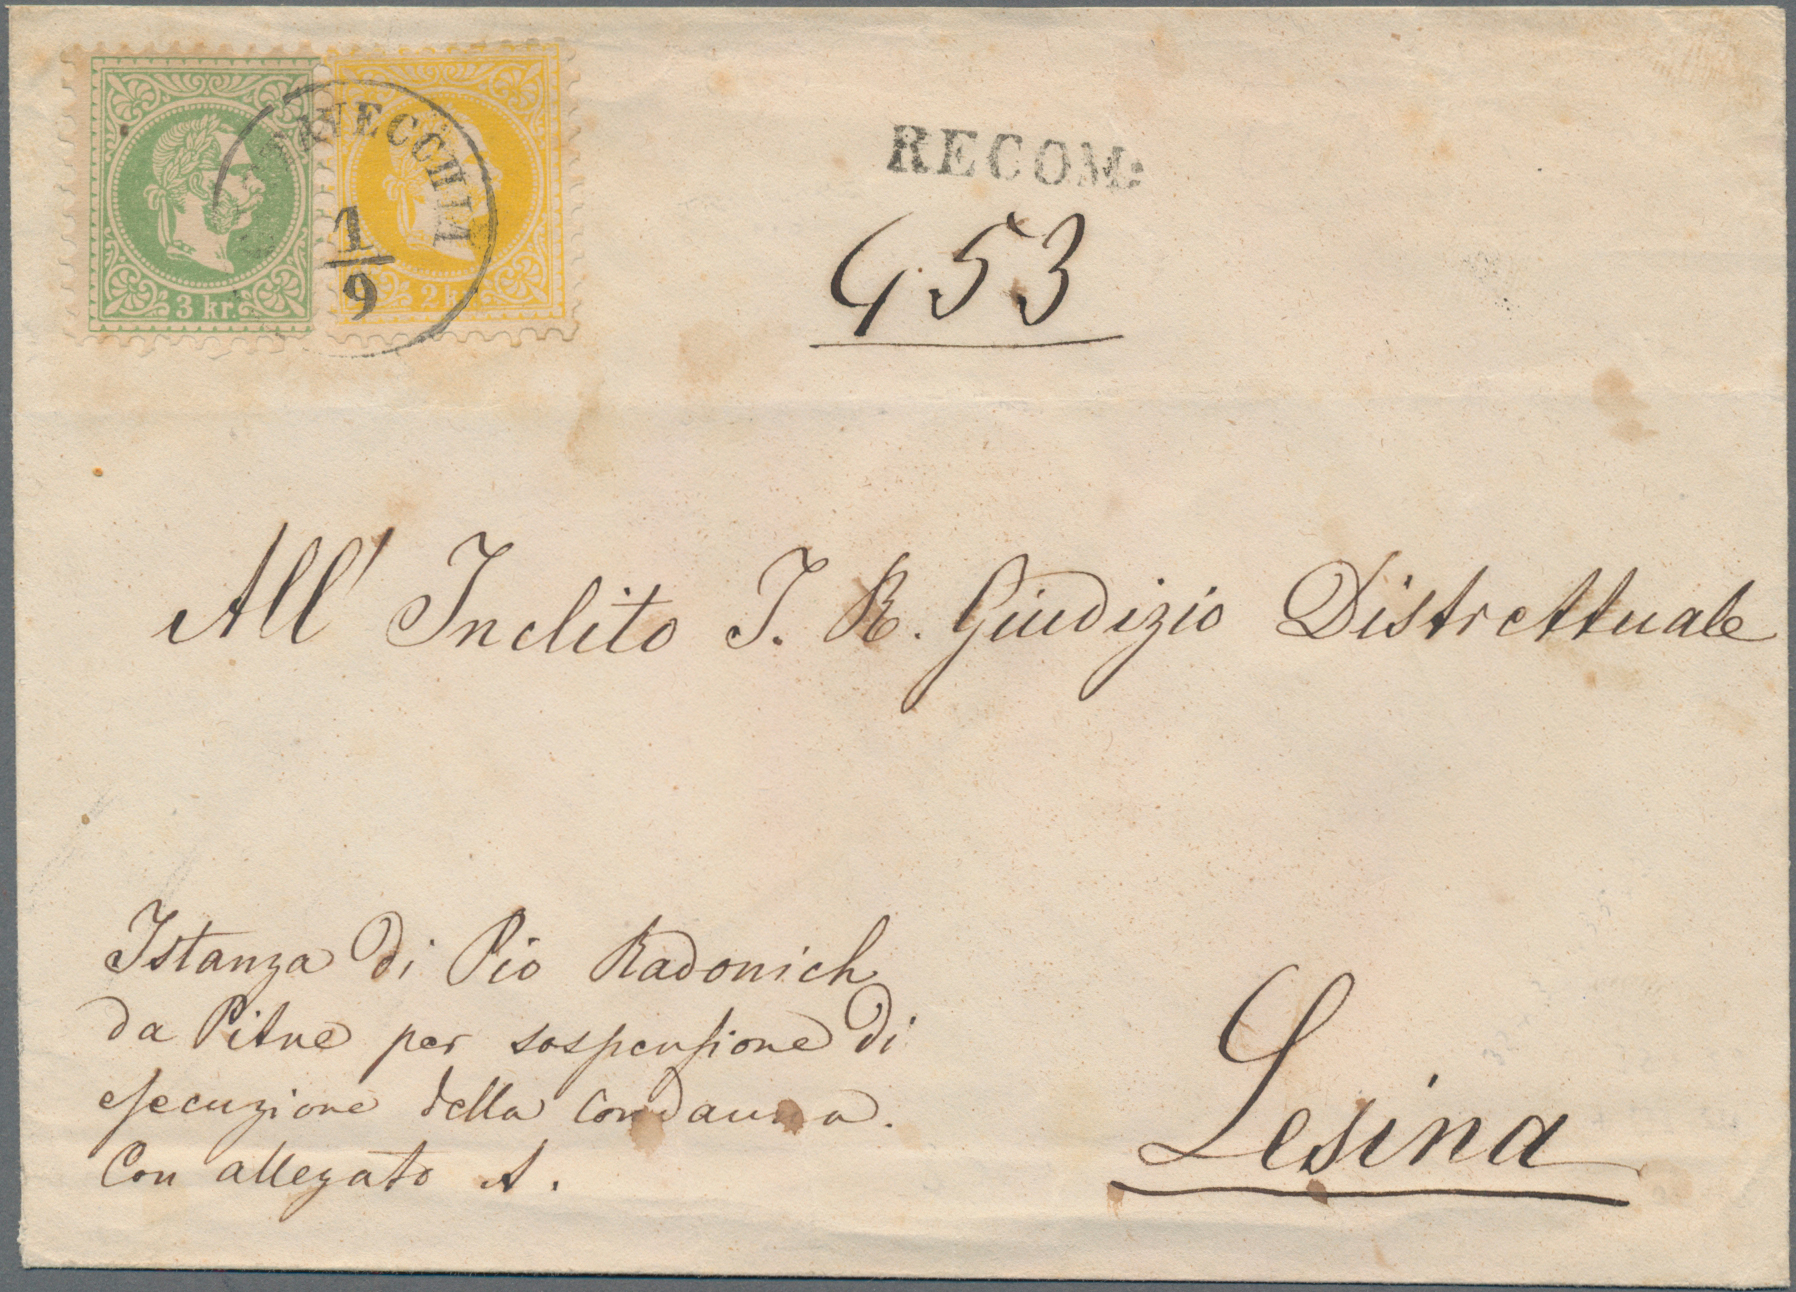 3 kr.
2 kr.
VECCHIA
1
9
RECOM:
453
All' Inclito I. R. Giudizio Distrettuale
Istanza di Pio Radonich
da Pitve per sospensione di
esecuzione della Condanna.
Con allegato A.
Lesina